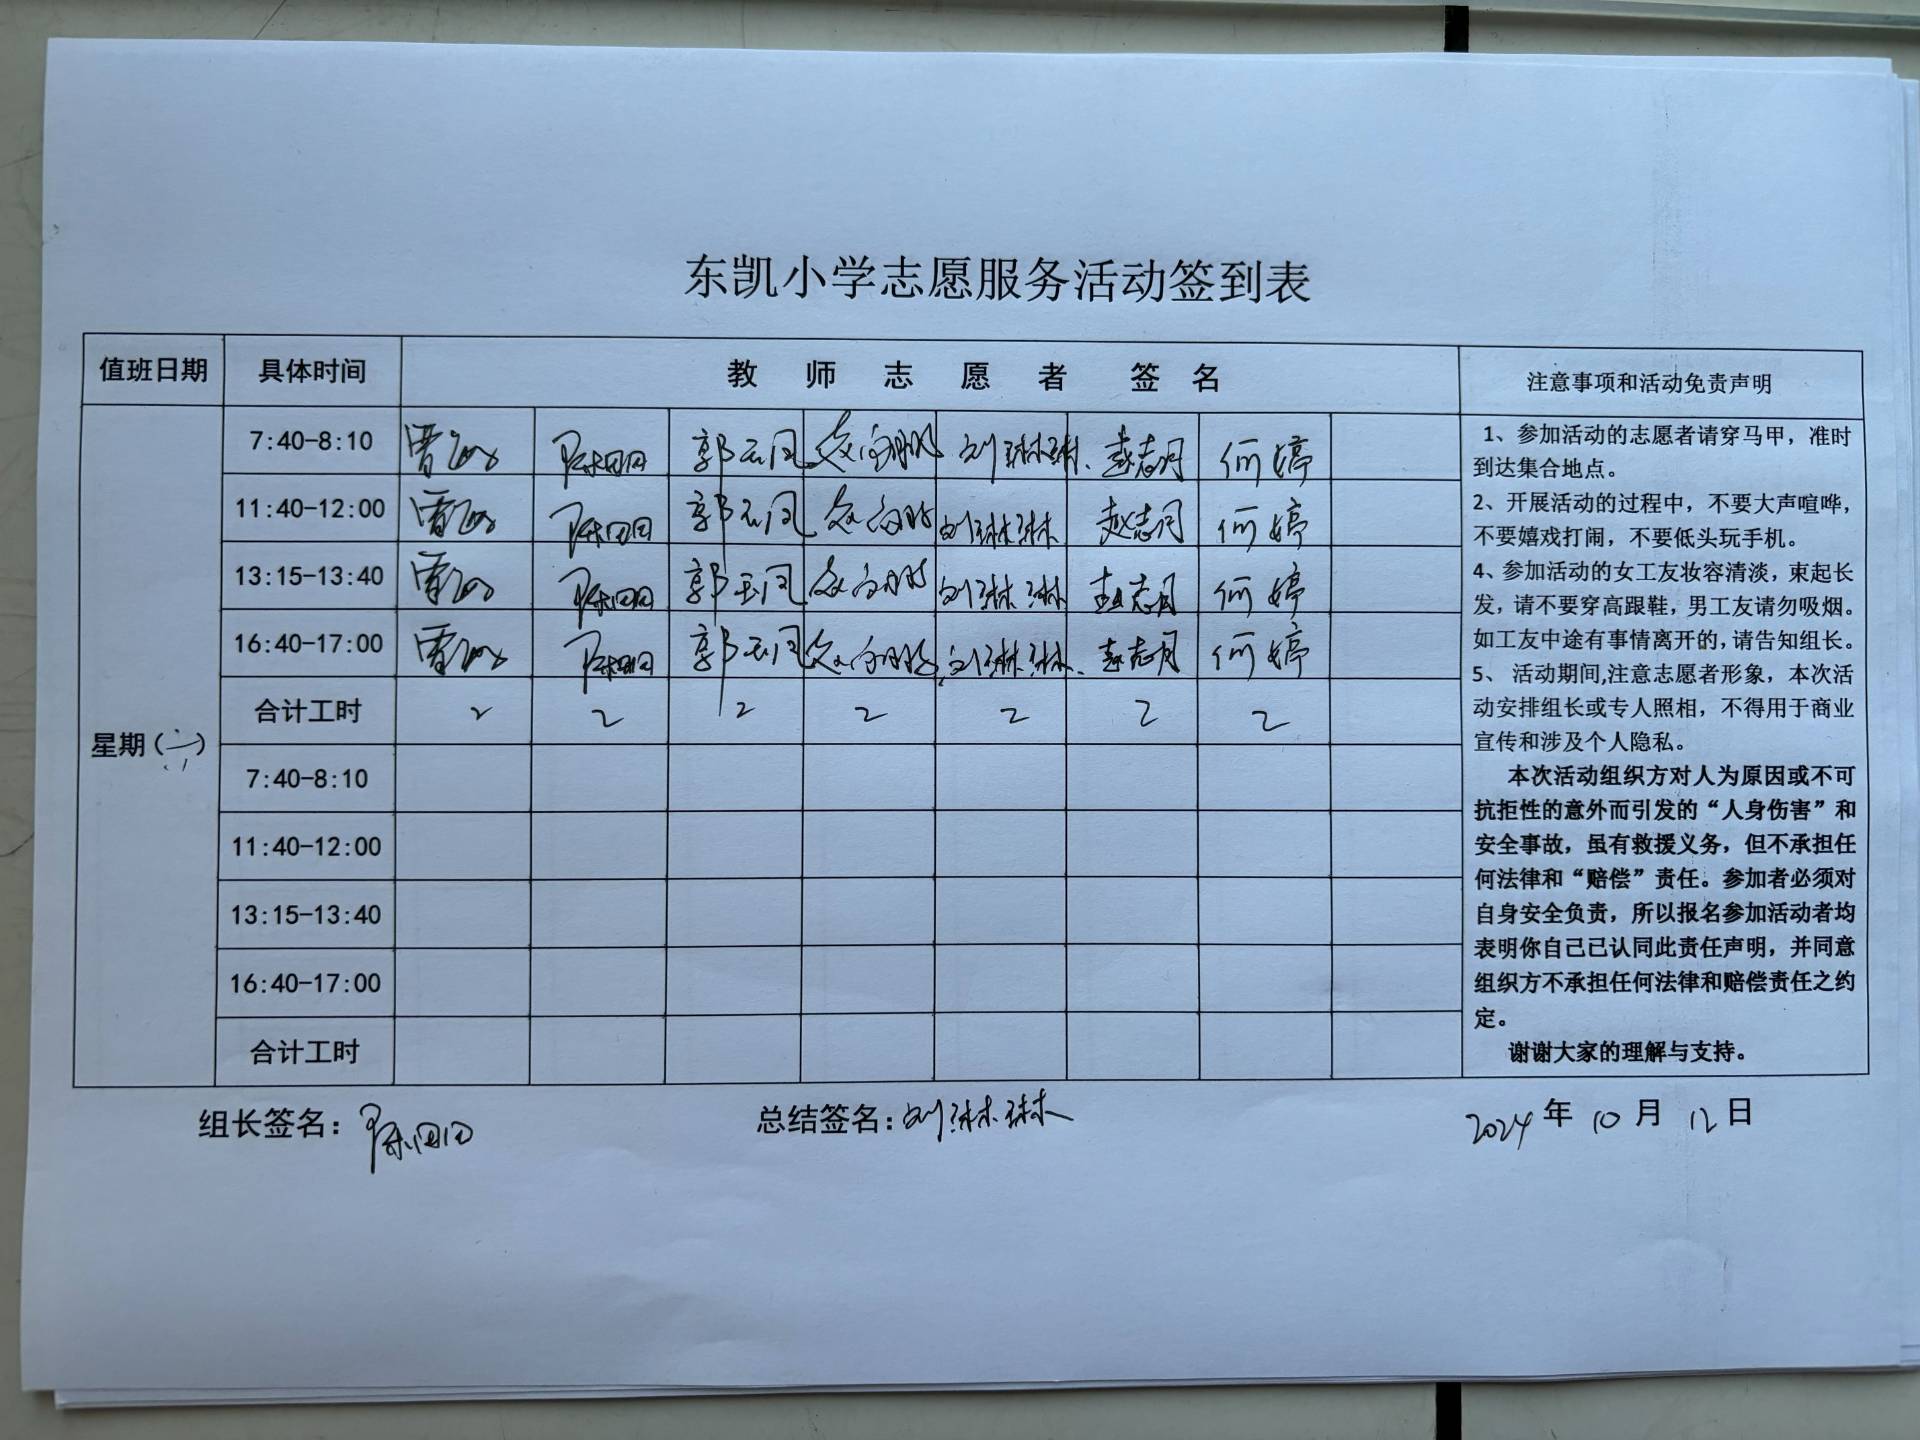 东凯小学志愿服务活动签到表
值班日期 具体时间 教师志愿者签名 注意事项和活动免责声明
星期(六)
7:40-8:10 陈田田 郭云凤 刘琳琳 赵志月 何婷
11:40-12:00 陈田田 郭云凤 刘琳琳 赵志月 何婷
13:15-13:40 陈田田 郭云凤 刘琳琳 赵志月 何婷
16:40-17:00 陈田田 郭云凤 刘琳琳 赵志月 何婷
合计工时 2 2 2 2 2 2 2
7:40-8:10
11:40-12:00
13:15-13:40
16:40-17:00
合计工时
1、参加活动的志愿者请穿马甲，准时
到达集合地点。
2、开展活动的过程中，不要大声喧哗，
不要嬉戏打闹，不要低头玩手机。
4、参加活动的女工友妆容清淡，束起长
发，请不要穿高跟鞋，男工友请勿吸烟。
如工友中途有事情离开的，请告知组长。
5、 活动期间,注意志愿者形象，本次活
动安排组长或专人照相，不得用于商业
宣传和涉及个人隐私。
本次活动组织方对人为原因或不可
抗拒性的意外而引发的“人身伤害”和
安全事故，虽有救援义务，但不承担任
何法律和“赔偿”责任。参加者必须对
自身安全负责，所以报名参加活动者均
表明你自己已认同此责任声明，并同意
组织方不承担任何法律和赔偿责任之约
定。
谢谢大家的理解与支持。
组长签名：陈田田 总结签名：刘琳琳 2024年10月12日